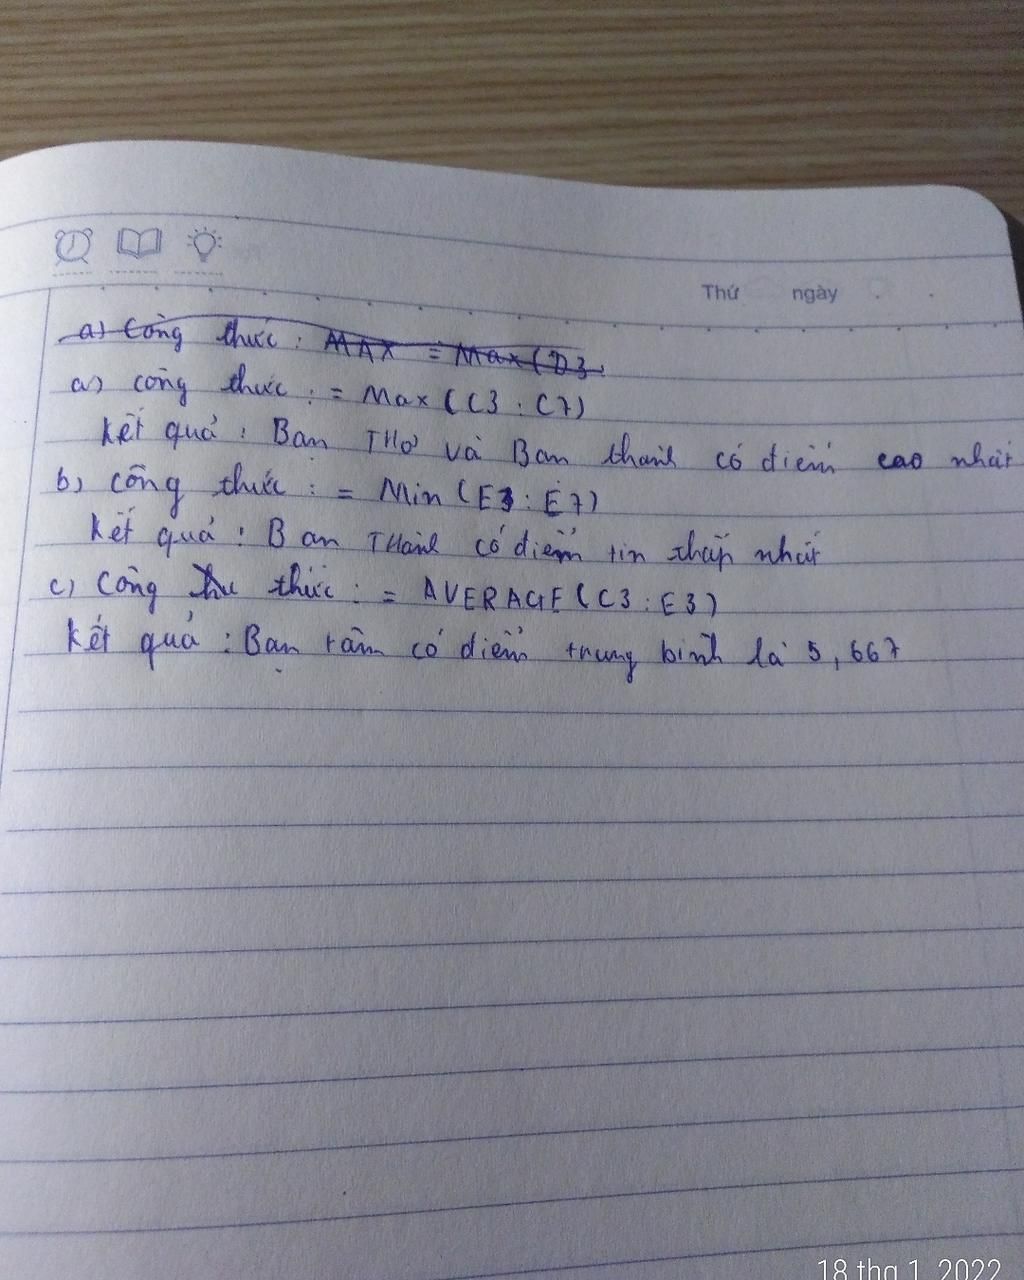 Thứ ngày
a) Công thức : MAX = Max(D3
a) công thức : = Max (C3 : C7)
Kết quả : Ban THơ và Ban thanh có điểm cao nhất
b) công thức : = Min (E3 : E7)
Kết quả : Ban THanh có điểm tin thấp nhất
c) Công thức : = AVERAGE (C3 : E3)
Kết quả : Bạn tâm có điểm trung bình là 5,667
18 thg 1, 2022